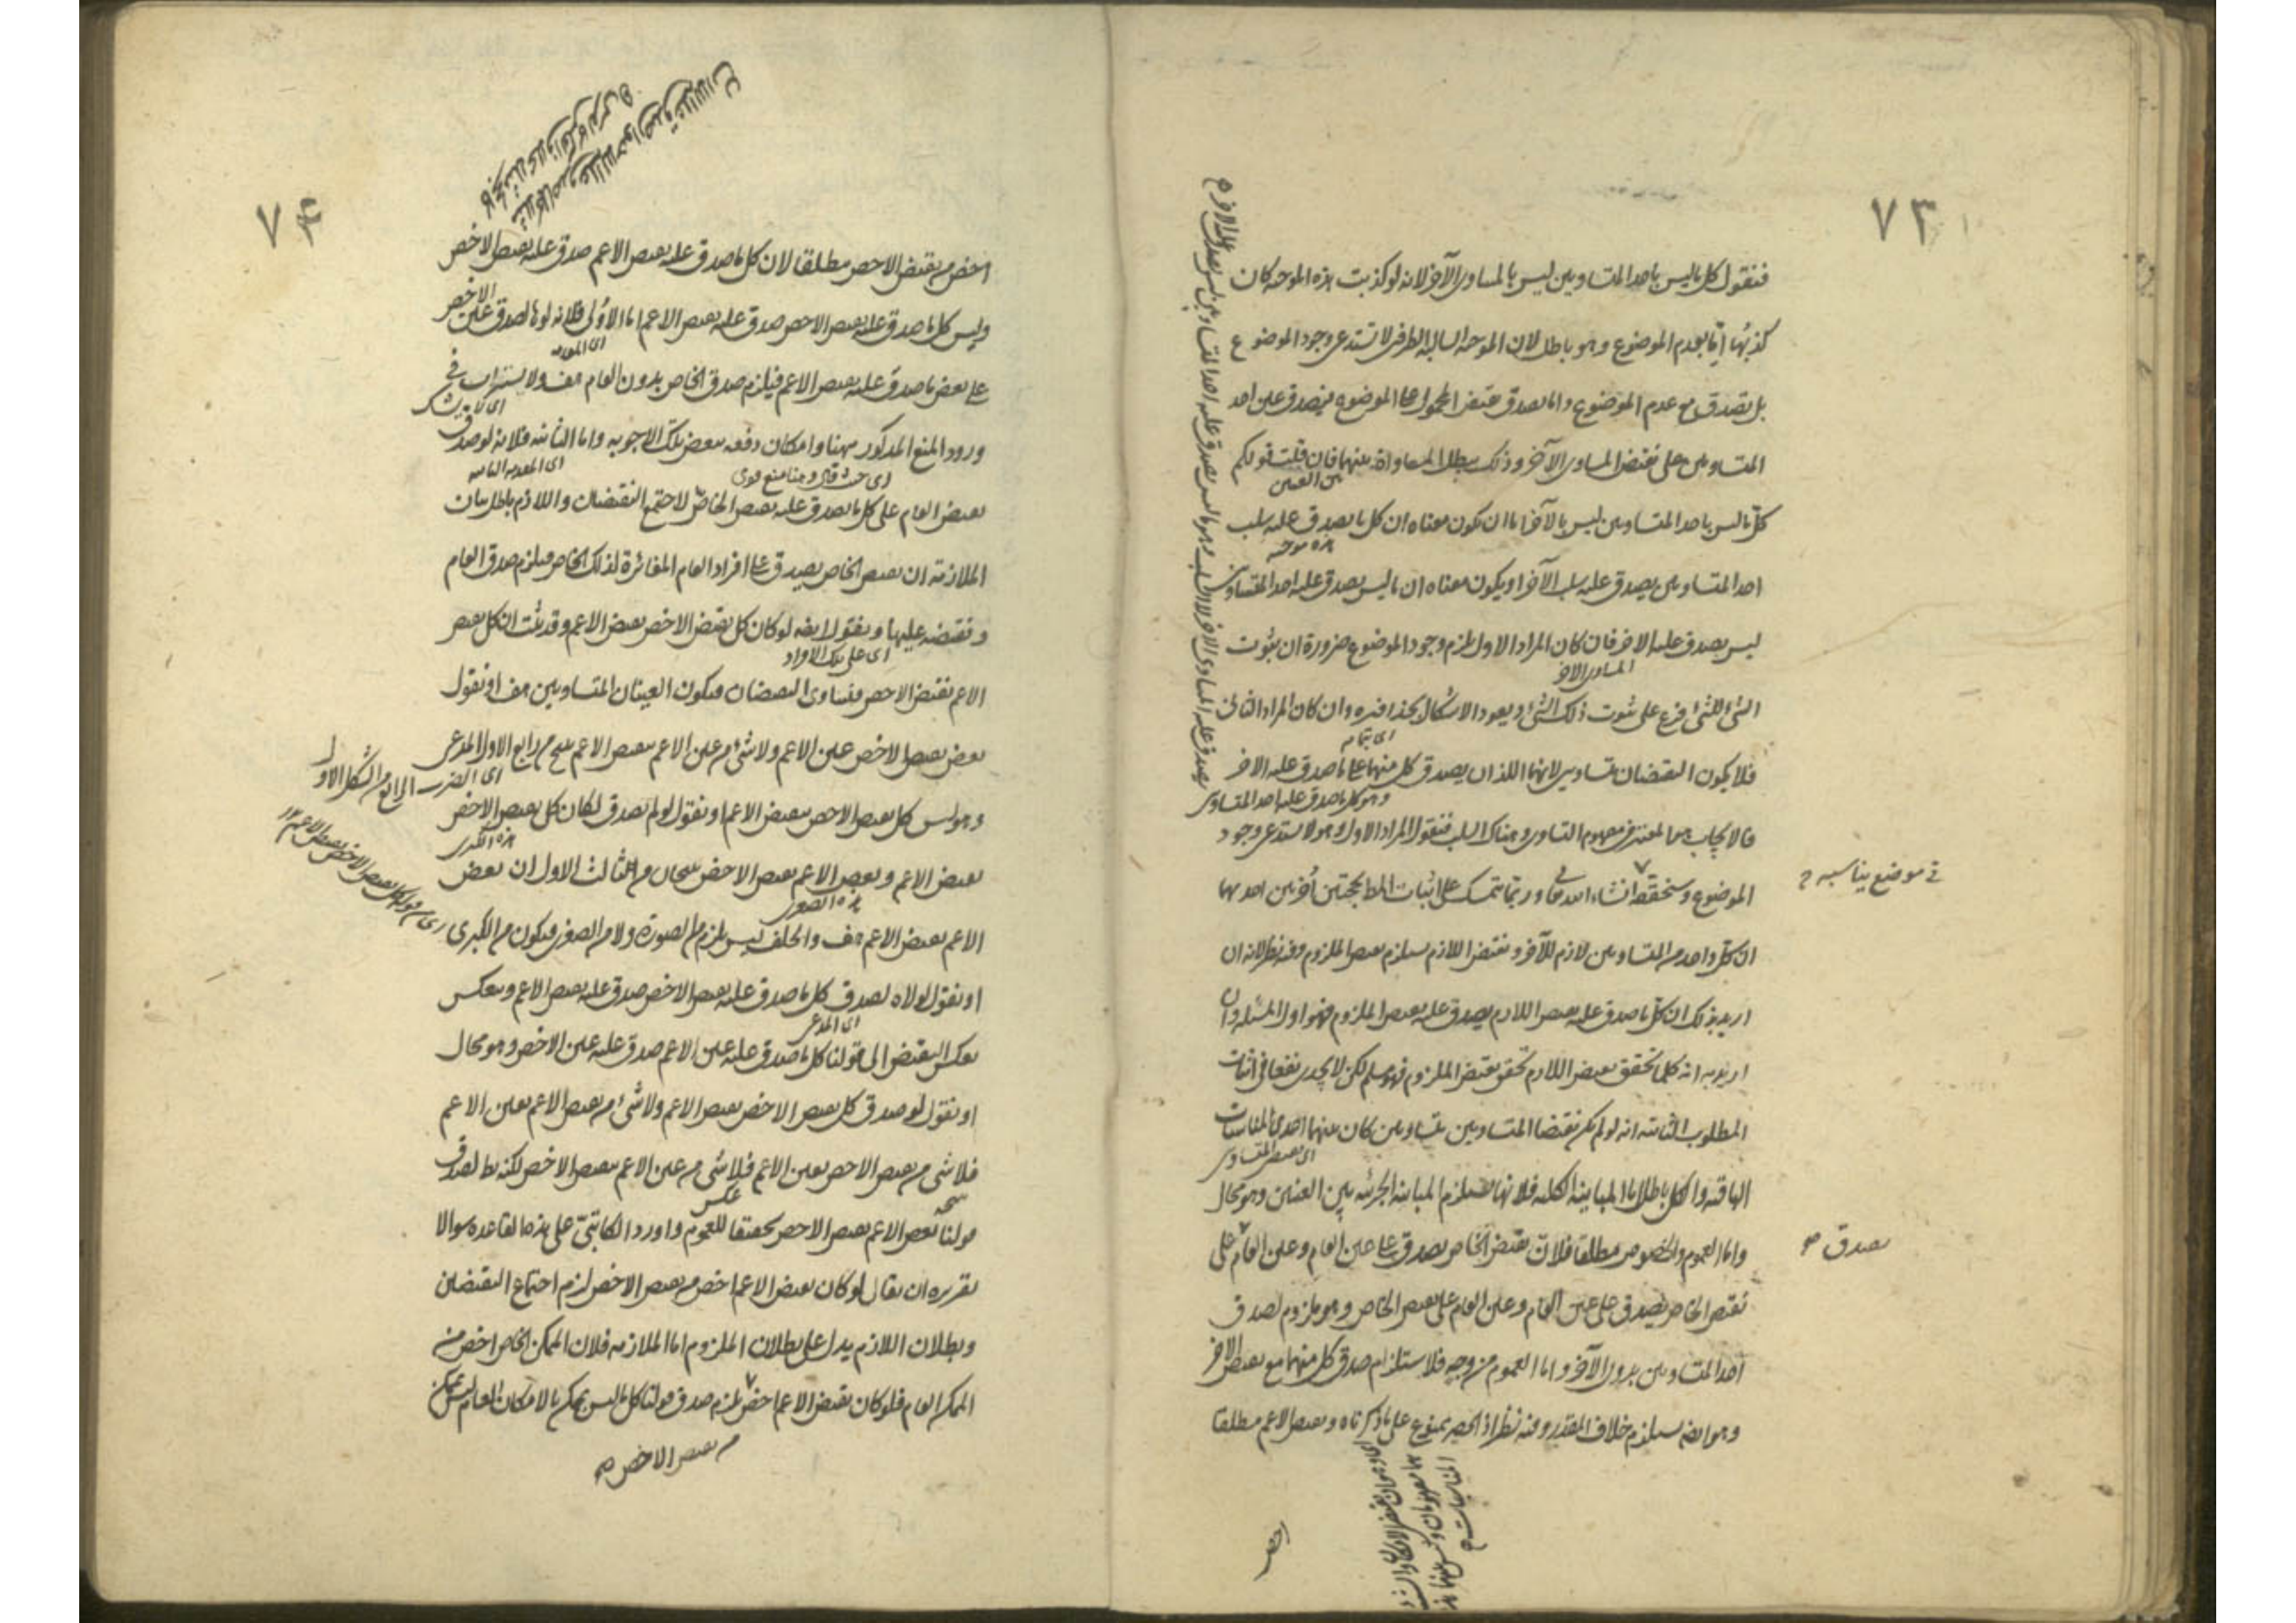 ٧٣
فنقول كل ما ليس باحد المتساويين ليس بالمساوى الآخر لانه لو كذبت هذه الموجبه كان
كذبها اما بعدم الموضوع وهو باطل لان الموجبه السالبه الطرفين لا تستدعى وجود الموضوع
بل تصدق مع عدم الموضوع واما بصدق نقيض المحمول على الموضوع فيصدق عين احد
المتساويين على نقيض المساوى الآخر وذلك يبطل المساواة بينهما فان قلت قولكم
بين العينين
كل ما ليس باحد المتساويين ليس بالآخر اما ان يكون معناه ان كل ما يصدق عليه سلب
هذه موجبه
احد المتساويين يصدق عليه سلب الآخر او يكون معناه ان ما ليس يصدق عليه احد المتساويين
ليس يصدق عليه الاخر فان كان المراد الاول يلزم وجود الموضوع ضرورة ان ثبوت
المساوى الاخر
الشئ للشئ فرع على ثبوت ذلك الشئ ويعود الاشكال بحذافيره وان كان المراد الثانى
اى بتمامه
فلا يكون النقيضان متساويين لانهما اللذان يصدق كل منهما على ما صدق عليه الاخر
وهو كل ما صدق عليه احد المتساوى
فالايجاب هو المعتبر فى مفهوم التساوى وهناك السلب فنقول المراد الاول وهو لا يستدعى وجود
الموضوع وسنحققه انشاء الله تعالى وربما يتمسك على اثبات المط بحجتين أخريين احديهما
فى موضع يناسبه
ان كل واحد من المتساويين لازم للآخر ونقيض اللازم يستلزم نقيض الملزوم وفيه نظر لانه ان
اريد بذلك ان كل ما صدق عليه نقيض اللازم يصدق عليه نقيض الملزوم فهو اول المسئله وان
اريد به انه كلما تحقق نقيض اللازم تحقق نقيض الملزوم فهو مسلم لكن لا يجدى نفعا فى اثبات
المطلوب الثانيه انه لو لم يكن نقيضا المتساويين متساويين كان بينهما احدى المناسبات
اى نقيض المتساوى
الباقيه والكل باطل اما المباينه الكليه فلانها تستلزم المباينه الجزئيه بين العينين وهو محال
واما العموم والخصوص مطلقا فلان نقيض الخاص يصدق على عين العام وعين العام على
يصدق
نقيض الخاص يصدق على عين العام وعين العام على نقيض الخاص وهو ملزوم لصدق
احد المتساويين بدون الآخر واما العموم من وجه فلاستلزام صدق كل منهما مع نقيض الاخر
وهو ايضا يستلزم خلاف المقدر وفيه نظر اذ الحصر ممنوع على ما ذكرناه ونقيض الاعم مطلقا
٧٤
اخص من نقيض الاخص مطلقا لان كل ما صدق عليه نقيض الاعم صدق عليه نقيض الاخص
وليس كل ما صدق عليه نقيض الاخص صدق عليه نقيض الاعم اما الأولى فلانه لولاها لصدق عين الاخص
اى المقدمه
على بعض ما صدق عليه نقيض الاعم فيلزم صدق الخاص بدون العام هف ولا يستراب فى
ورود المنع المذكور ههنا وامكان دفعه ببعض تلك الاجوبه واما الثانيه فلانه لو صدق
اى المقدمه الثانيه
نقيض العام على كل ما يصدق عليه نقيض الخاص لاجتمع النقيضان واللازم باطل بيان
الملازمه ان نقيض الخاص يصدق على افراد العام المغائرة لذلك الخاص فيلزم صدق العام
ونقيضه عليها ونقول ايضا لو كان كل نقيض الاخص نقيض الاعم وقد ثبت ان كل نقيض
اى على تلك الافراد
الاعم نقيض الاخص فيتساوى النقيضان فيكون العينان المتساويين هف او نقول
بعض نقيض الاخص عين الاعم ولا شئ من عين الاعم بنقيض الاعم ينتج من رابع الاول المدعى
اى الضرب الرابع من الشكل الاول
وهو ليس كل نقيض الاخص بنقيض الاعم او نقول لو لم يصدق لكان كل نقيض الاخص
هذه الكبرى
نقيض الاعم وبعض الاعم نقيض الاخص ينتجان من الثالث الاول ان بعض
هذه الصغرى
الاعم نقيض الاعم هف والخلف ليس يلزم من الصورة ولا من الصغرى فيكون من الكبرى
او نقول لولاه لصدق كل ما صدق عليه نقيض الاخص صدق عليه نقيض الاعم وينعكس
اى المدعى
بعكس النقيض الى قولنا كل ما صدق عليه عين الاعم صدق عليه عين الاخص وهو محال
او نقول لو صدق كل نقيض الاخص نقيض الاعم ولا شئ من نقيض الاعم بعين الاعم
فلا شئ من نقيض الاخص بعين الاعم فلا شئ من عين الاعم بنقيض الاخص لكنه بط لصدق
عكس
قولنا بعض الاعم نقيض الاخص تحقيقا للعموم واورد الكاتبى على هذه القاعده سوالا
تقريره ان يقال لو كان نقيض الاعم اخص من نقيض الاخص لزم اجتماع النقيضين
وبطلان اللازم يدل على بطلان الملزوم اما الملازمه فلان الممكن الخاص اخص من
الممكن العام فلو كان نقيض الاعم اخص يلزم صدق قولنا كل ما ليس بممكن بالامكان العام ليس بممكن
من نقيض الاخص